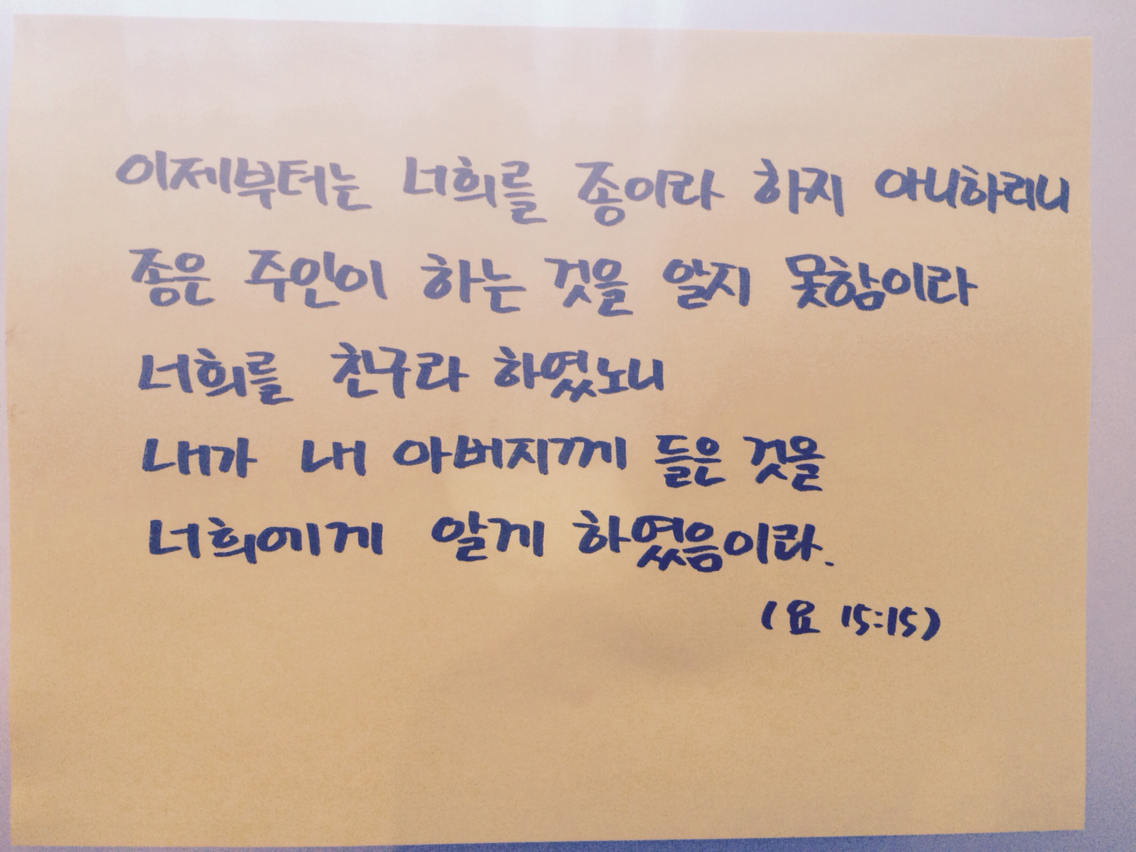 이제부터는 너희를 종이라 하지 아니하리니
종은 주인이 하는 것을 알지 못함이라
너희를 친구라 하였노니
내가 내 아버지께 들은 것을
너희에게 알게 하였음이라.
(요 15:15)